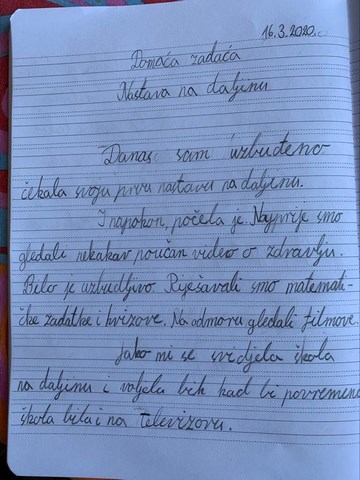 16.3.2020.
Domaća zadaća
Nastava na daljinu
Danas sam uzbuđeno
čekala svoju prvu nastavu na daljinu.
I napokon, počela je. Najprije smo
gledali nekakav poučan video o zdravlju.
Bilo je uzbudljivo. Rješavali smo matemati-
čke zadatke i kvizove. Na odmoru gledali filmove.
Jako mi se svidjela škola
na daljinu i voljela bih kad bi povremeno
škola bila i na televizoru.